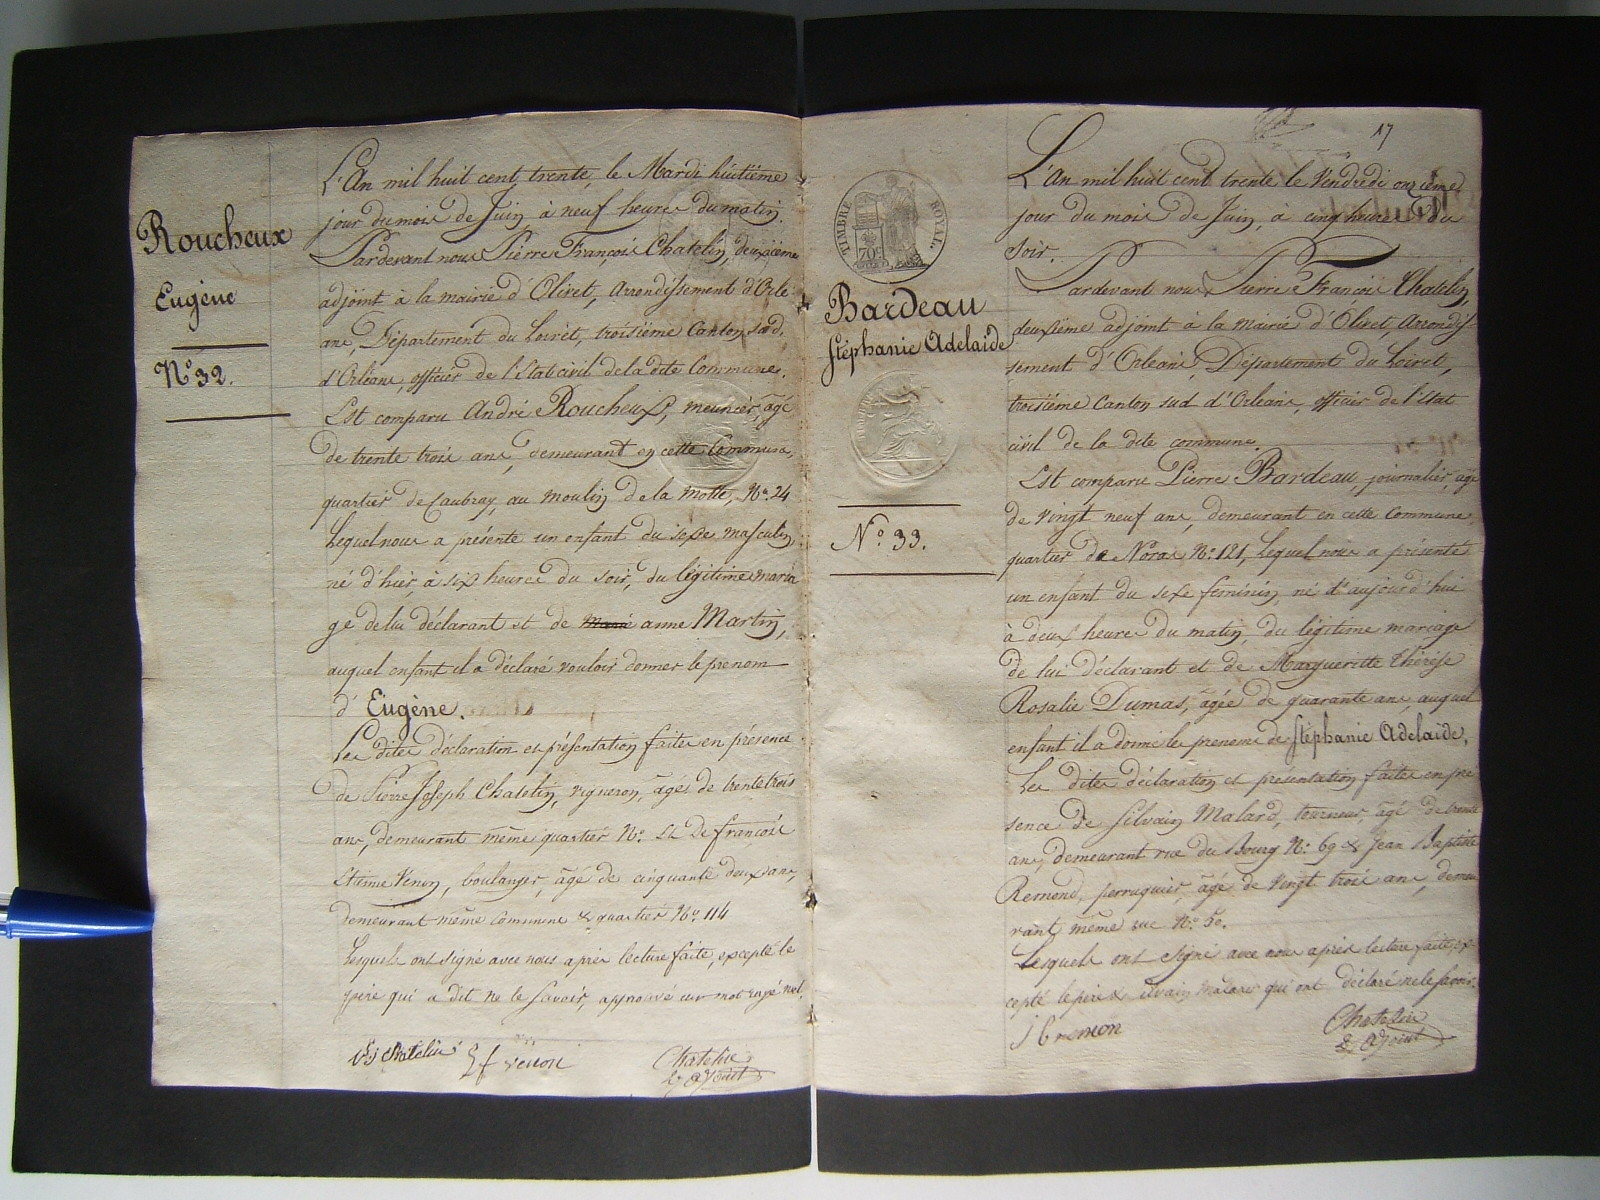 Roucheux
Eugène
N.° 32.
L'An mil huit cent trente, le Mardi huitième
jour du mois de Juin à neuf heures du matin.
Pardevant nous Pierre François Chatelin, deuxième
adjoint à la mairie d'Olivet, Arrondissement d'Orlé
ans, Département du Loiret, troisième Canton sud
d'Orléans, officier de l'Etat civil de la dite Commune.
Est comparu André Roucheux, meunier, âgé
de trente trois ans, demeurant en cette Commune,
quartier de Caubray, au moulin de la Motte, N.° 24
Lequel nous a présenté un enfant du sexe masculin
né d'hier, à six heures du soir, du légitime maria
ge de lui déclarant et de Marie anne Martin,
auquel enfant il a déclaré vouloir donner le prenom
d'Eugène.
Les dites déclaration et présentation faites en présence
de Pierre Joseph Chatelin, vigneron, âgés de trente trois
ans, demeurant même quartier N.° De françois
Etienne Venon, boulanger, âgé de cinquante deux ans,
demeurant même commune & quartier N.° 114
Lesquels ont signé avec nous après lecture faite, excepté le
père qui a dit ne le savoir, approuvé un mot rayé nul.
chatelin
E f venon
Chatelin
adjoint
17
TIMBRE ROYAL.
70c
Bardeau
Stéphanie Adelaide
N.° 33.
L'An mil huit cent trente le Vendredi onzième
jour du mois de Juin, à cinq heures du
soir.
Pardevant nous Pierre François Chatelin,
deuxième adjoint à la mairie d'Olivet, Arrondis
sement d'Orléans, Département du Loiret,
troisième Canton sud d'Orléans, officier de l'Etat
civil de la dite commune.
Est comparu Pierre Bardeau, journalier, âgé
de vingt neuf ans, demeurant en cette Commune,
quartier de Noras N.° 121, Lequel nous a présenté
un enfant du sexe féminin, né d'aujourd'hui
à deux heures du matin, du légitime mariage
de lui déclarant et de Margueritte thérèse
Rosalie Dumas, âgée de quarante ans, auquel
enfant il a donné les prenoms de Stéphanie Adelaide.
Les dites déclaration et présentation faites en pré
sence de Silvain Malard, tourneur, âgé de trente
ans, demeurant rue du Bourg N.° 69 & Jean Baptiste
Remond, perruquier, âgé de vingt trois ans, demeu
rant même rue N.° 50.
Lesquels ont signé avec nous après lecture faite, ex
cepté le père & silvain Malard qui ont déclaré ne le savoir.
J b remon
Chatelin
adjoint